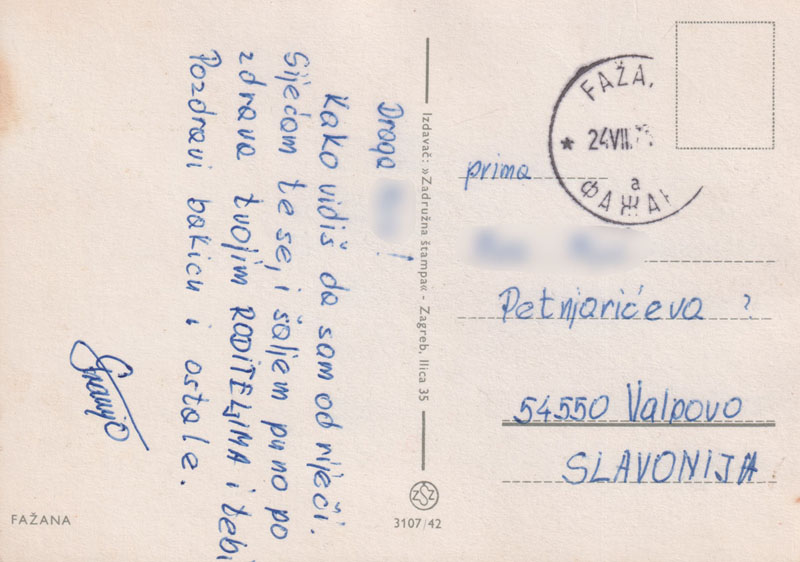 Draga !
Kako vidiš da sam od riječi.
Sijećam te se, i šaljem puno po
zdrava tvojim RODITELJIMA i tebi
Pozdravi bakicu i ostale.
FAŽANA
Izdavač: »Zadružna štampa« - Zagreb, Ilica 35
ZSZ
3107/42
FAŽA
* 24VII.
a
ФАЖАН
prima
Petnjarićeva ?
54550 Valpovo
SLAVONIJA